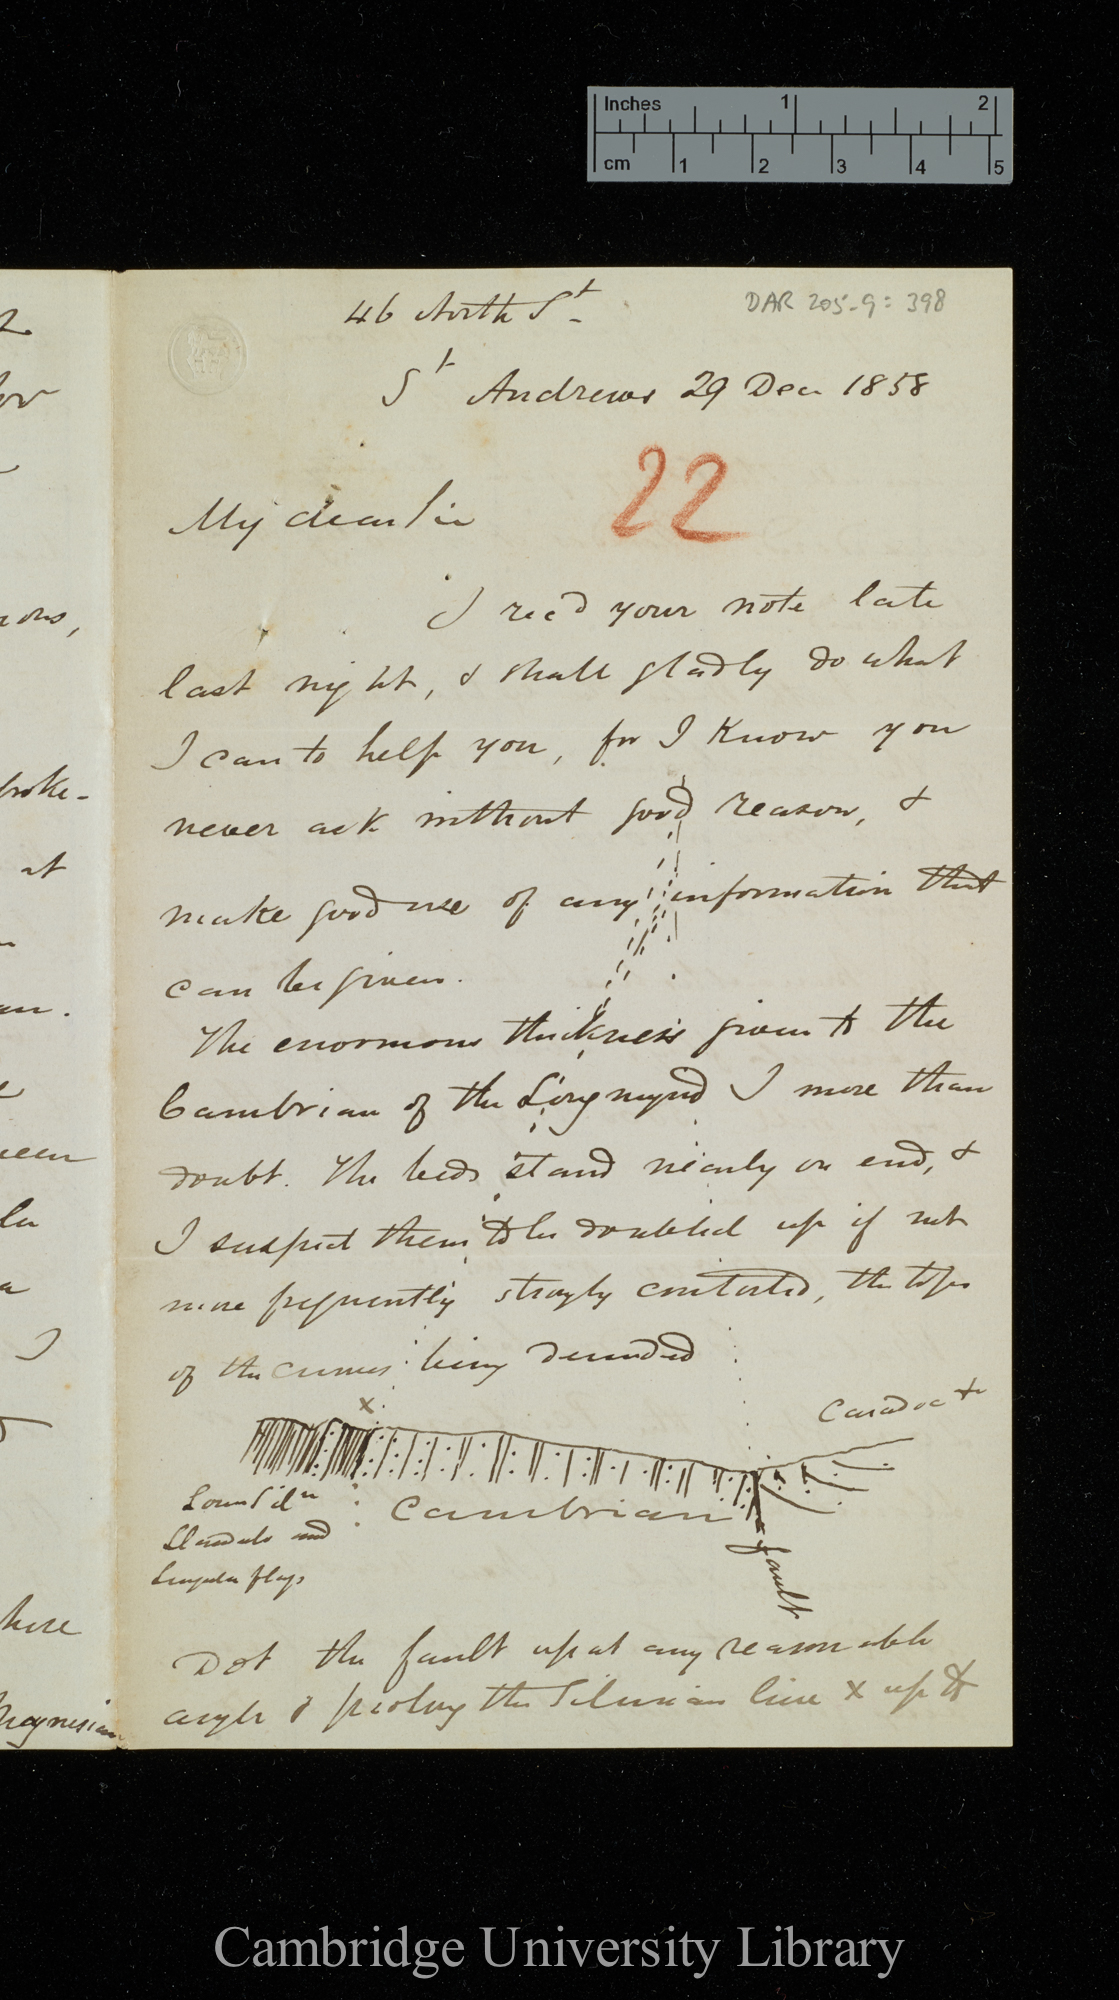 Inches 1 2
cm 1 2 3 4 5
DAR 205.9: 398
46 North St
St Andrews 29 Dec 1858
22
My dear Sir
I recd your note late
last night, & shall gladly do what
I can to help you, for I know you
never ask without good reason, &
make good use of any information that
can be given.
The enormous thickness given to the
Cambrian of the Longmynd I more than
doubt. The beds stand nearly on end, &
I suspect them to be doubled up if not
more frequently strongly contorted, the tops
of the curves being denuded
x
Caradoc &
Lower Siln
Llandeilo and
Lingula flags
Cambrian
fault
Dot the fault up at any reasonable
angle & prolong the Silurian line x up to
broke-
at
here
Magnesian